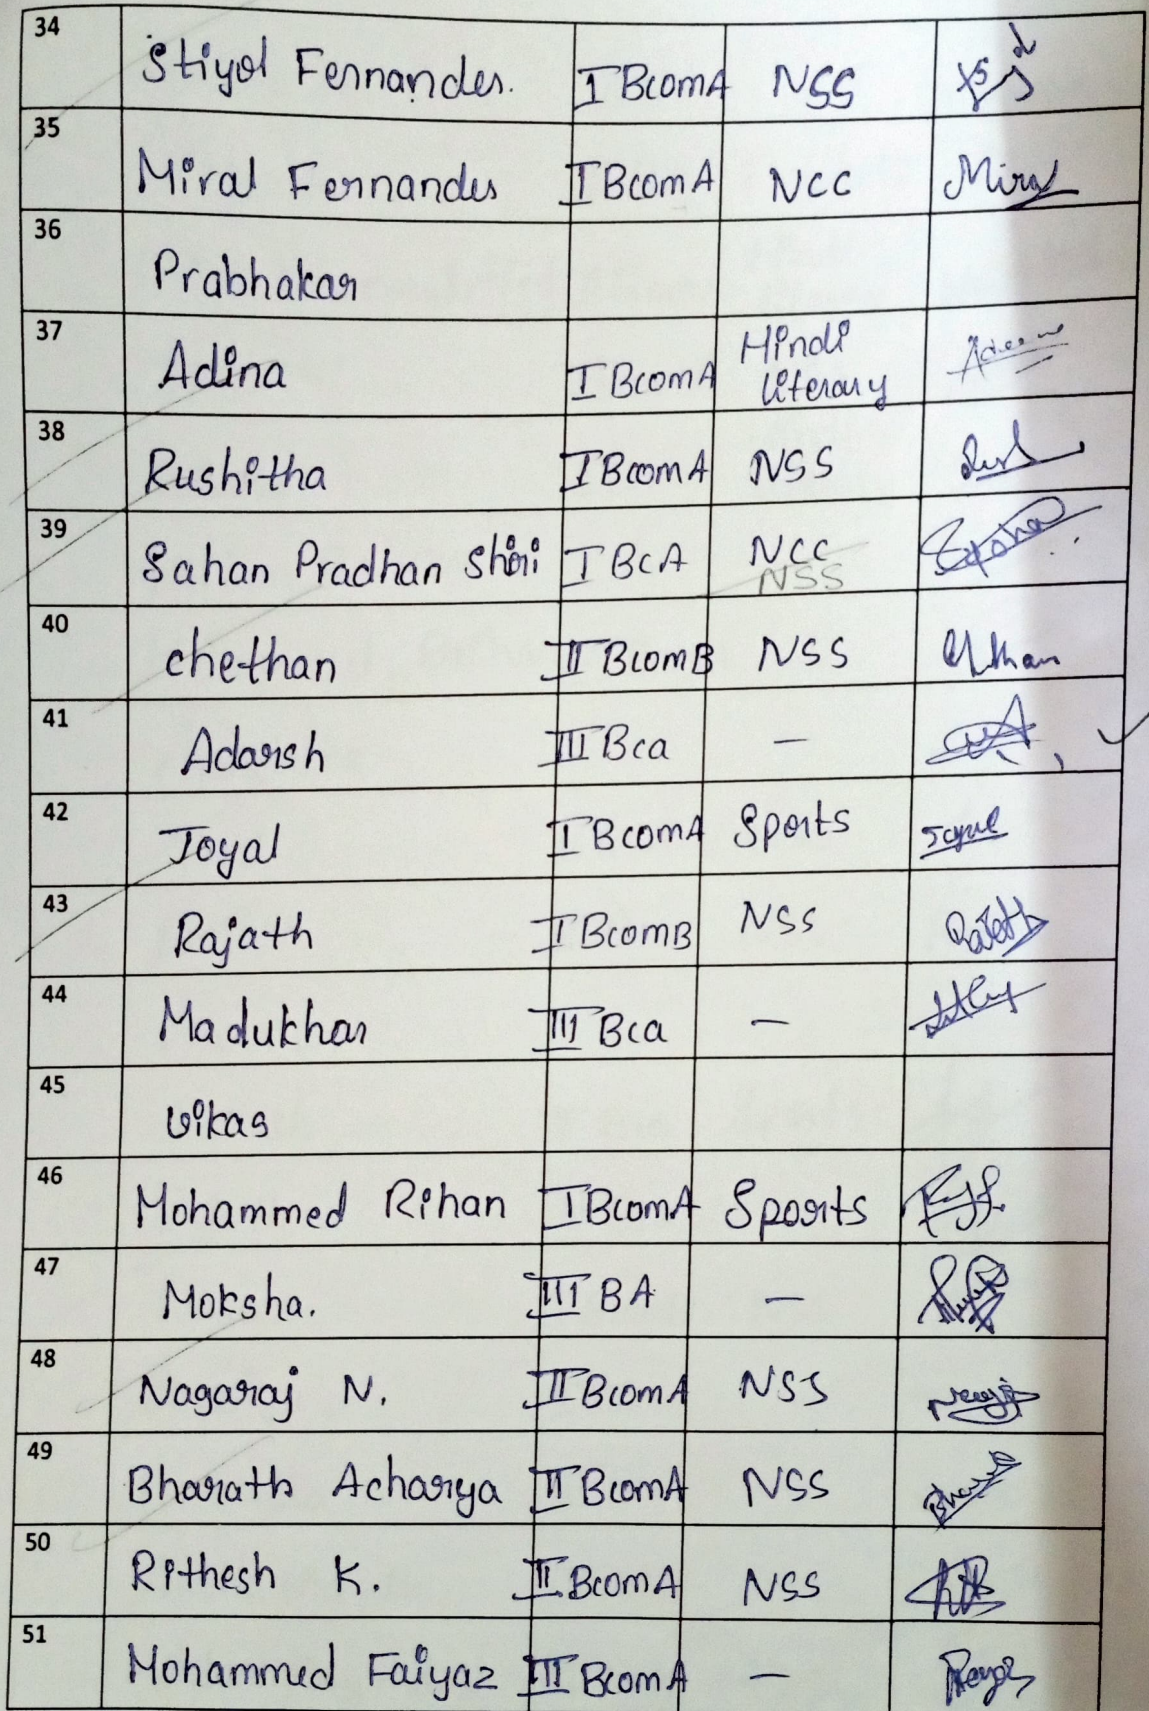 34 Stiyol Fernandes. I BcomA NSS
35 Miral Fernandes I BcomA NCC Miral
36 Prabhakar
37 Adina I BcomA Hindi
Literary
38 Rushitha I BcomA NSS
39 Sahan Pradhan Shri I BCA NCC
NSS
40 chethan II BcomB NSS Chethan
41 Adarsh III Bca –
42 Joyal I BcomA Sports Joyal
43 Rajath I BcomB NSS Rajath
44 Madukhar III Bca –
45 vikas
46 Mohammed Rihan I BcomA Sports
47 Moksha. III BA –
48 Nagaraj N. II BcomA NSS
49 Bharath Acharya II BcomA NSS
50 Rithesh K. II BcomA NSS
51 Mohammed Faiyaz III BcomA –